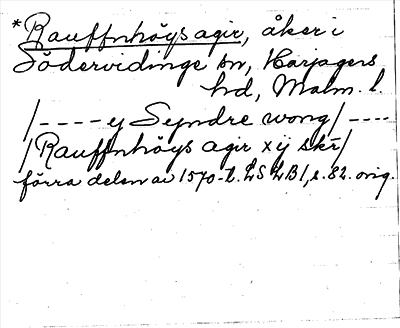 *Rauffnhöys agir, åker i
Södervidinge sn, Harjagers
hd, Malm. l.
/---- ej Syndre wong/----
/Rauffnhöys agir xij skr̄/
förra delen av 1570-t. LSLB1, s. 82. orig.